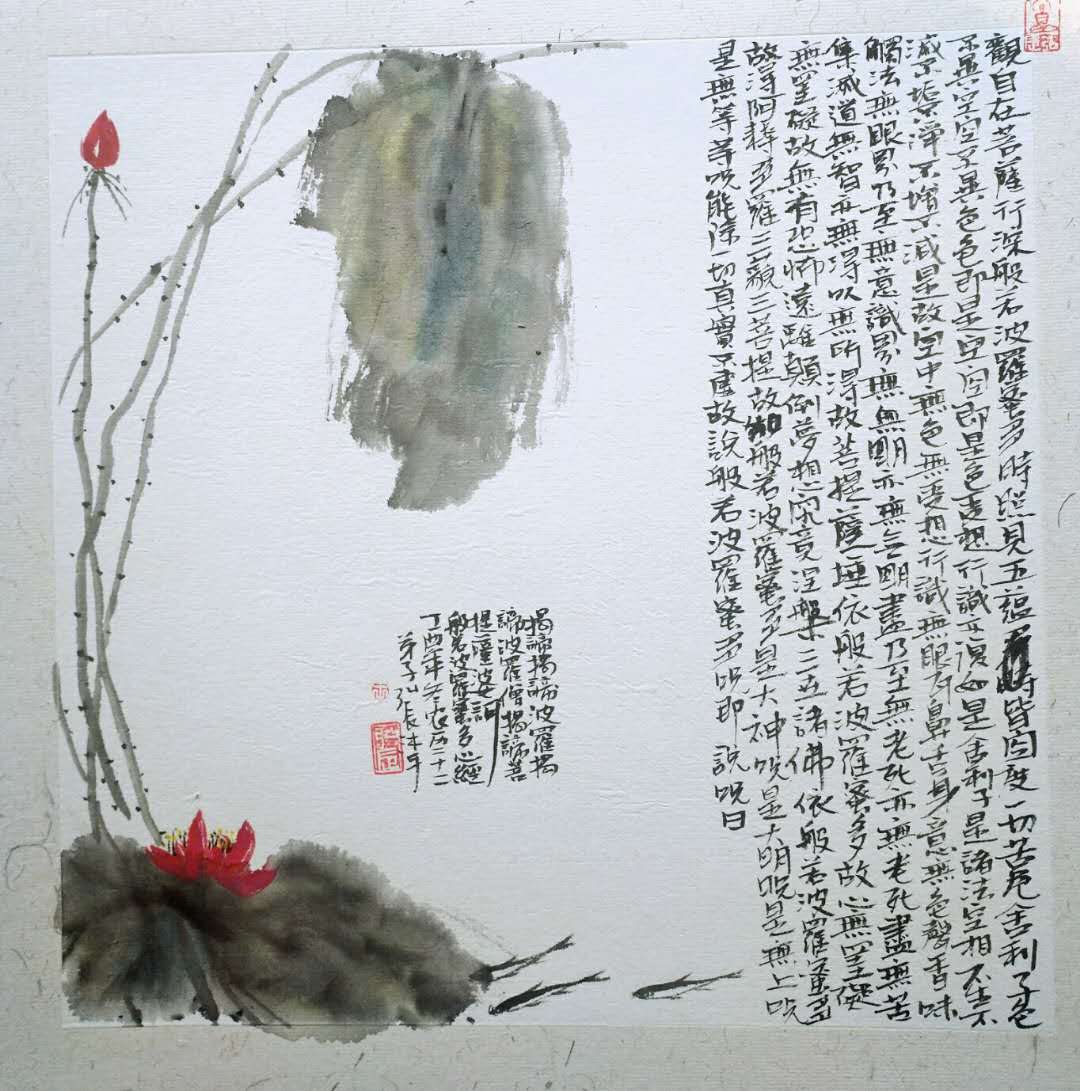 觀自在菩薩行深般若波羅蜜多時照見五蘊皆空度一切苦厄舍利子色
不異空空不異色色即是空空即是色受想行識亦復如是舍利子是諸法空相不生不
滅不垢淨不增不減是故空中無色無受想行識無眼耳鼻舌身意無色聲香味
觸法無眼界乃至無意識界無無明亦無無明盡乃至無老死亦無老死盡無苦
集滅道無智亦無得以無所得故菩提薩埵依般若波羅蜜多故心無罣礙
無罣礙故無有恐怖遠離顛倒夢想究竟涅槃三世諸佛依般若波羅蜜多
故得阿耨多羅三藐三菩提故知般若波羅蜜多是大神咒是大明咒是無上咒
是無等等咒能除一切真實不虛故說般若波羅蜜多咒即說咒曰
揭諦揭諦波羅揭
諦波羅僧揭諦菩
提薩婆訶
般若波羅蜜多心經
丁酉年冬農历二十二
弟子